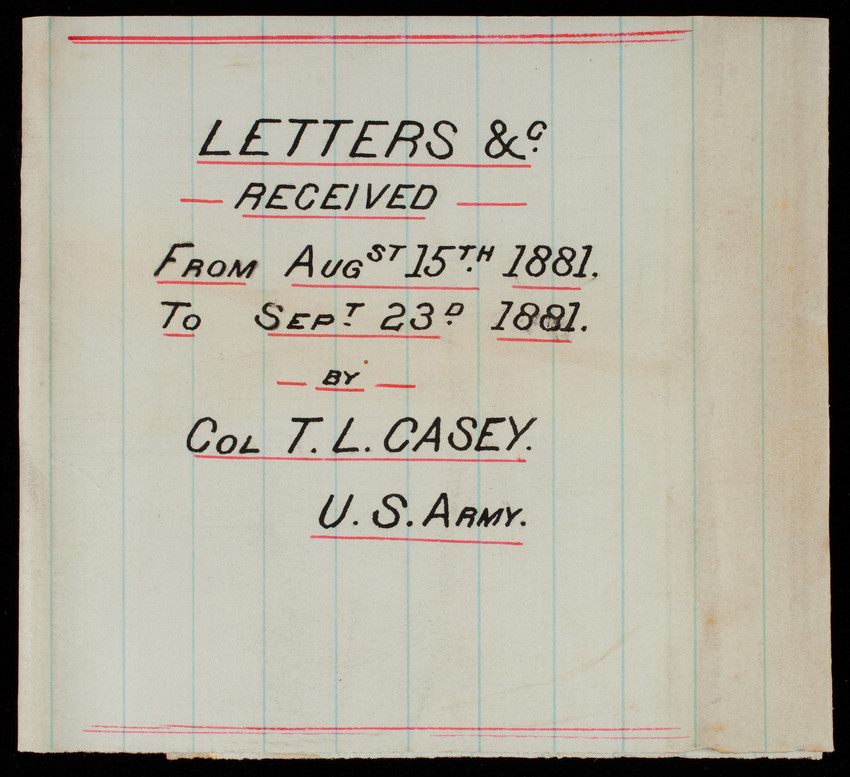 LETTERS &C.
— RECEIVED —
FROM AUGST 15TH 1881.
TO SEPT. 23D. 1881.
— BY —
COL T. L. CASEY.
U. S. ARMY.